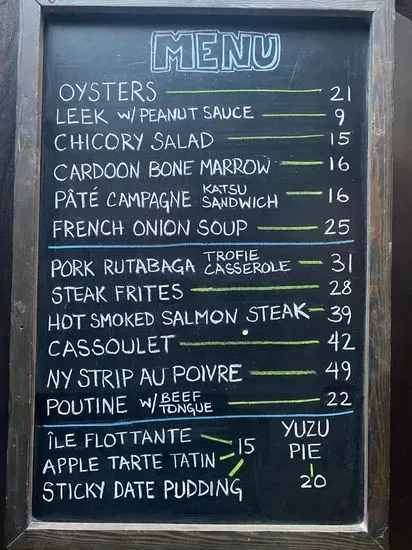 MENU
OYSTERS 21
LEEK W/ PEANUT SAUCE 9
CHICORY SALAD 15
CARDOON BONE MARROW 16
PÂTÉ CAMPAGNE KATSU SANDWICH 16
FRENCH ONION SOUP 25
PORK RUTABAGA TROFIE CASSEROLE 31
STEAK FRITES 28
HOT SMOKED SALMON STEAK 39
CASSOULET 42
NY STRIP AU POIVRE 49
POUTINE W/ BEEF TONGUE 22
ÎLE FLOTTANTE
APPLE TARTE TATIN 15
STICKY DATE PUDDING
YUZU
PIE
20